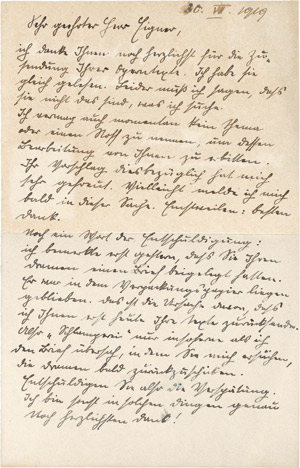 30. VII. 1919
Sehr geehrter Herr Eigner,
ich danke Ihnen noch herzlichst für die Zu-
sendung Ihrer Operntexte. Ich habe sie
gleich gelesen. Leider muß ich sagen, dass
sie nicht das sind, was ich suche.
Ich vermag auch momentan kein Thema
oder einen Stoff zu nennen, um dessen
Bearbeitung von Ihnen zu erbitten.
Ihr Vorschlag diesbezüglich hat mich
sehr gefreut. Vielleicht melde ich mich
bald in dieser Sache. Einstweilen: besten
Dank.
Noch ein Wort der Entschuldigung:
ich bemerkte erst gestern, dass Sie Ihren
Dramen einen Brief beigelegt hatten.
Er war in dem Verpackungspapier liegen
geblieben. Das ist die Ursache davon, dass
ich Ihnen erst heute Ihre Texte zurücksende.
Also „Schlamperei nur insoferne als ich
den Brief übersah, in dem Sie mich ersuchen,
die Dramen bald zurückzuschicken.
Entschuldigen Sie also die Verspätung.
Ich bin sonst in solchen Dingen genau
Noch herzlichsten Dank!